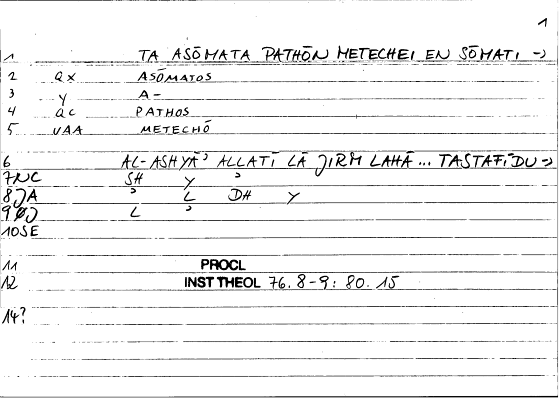 1
1 TA ASŌMATA PATHŌN METECHEI EN SŌMATI →
2 QX ASŌMATOS
3 Y A-
4 QC PATHOS
5 VAA METECHŌ
6 AL-ASHYĀʾ ALLATĪ LĀ JIRM LAHĀ... TASTAFĪDU →
7 NC SH Y ʾ
8 JA ʾ L DH Y
9 ØJ L ʾ
10 SE
11 PROCL
12 INST THEOL 76. 8-9: 80. 15
14?